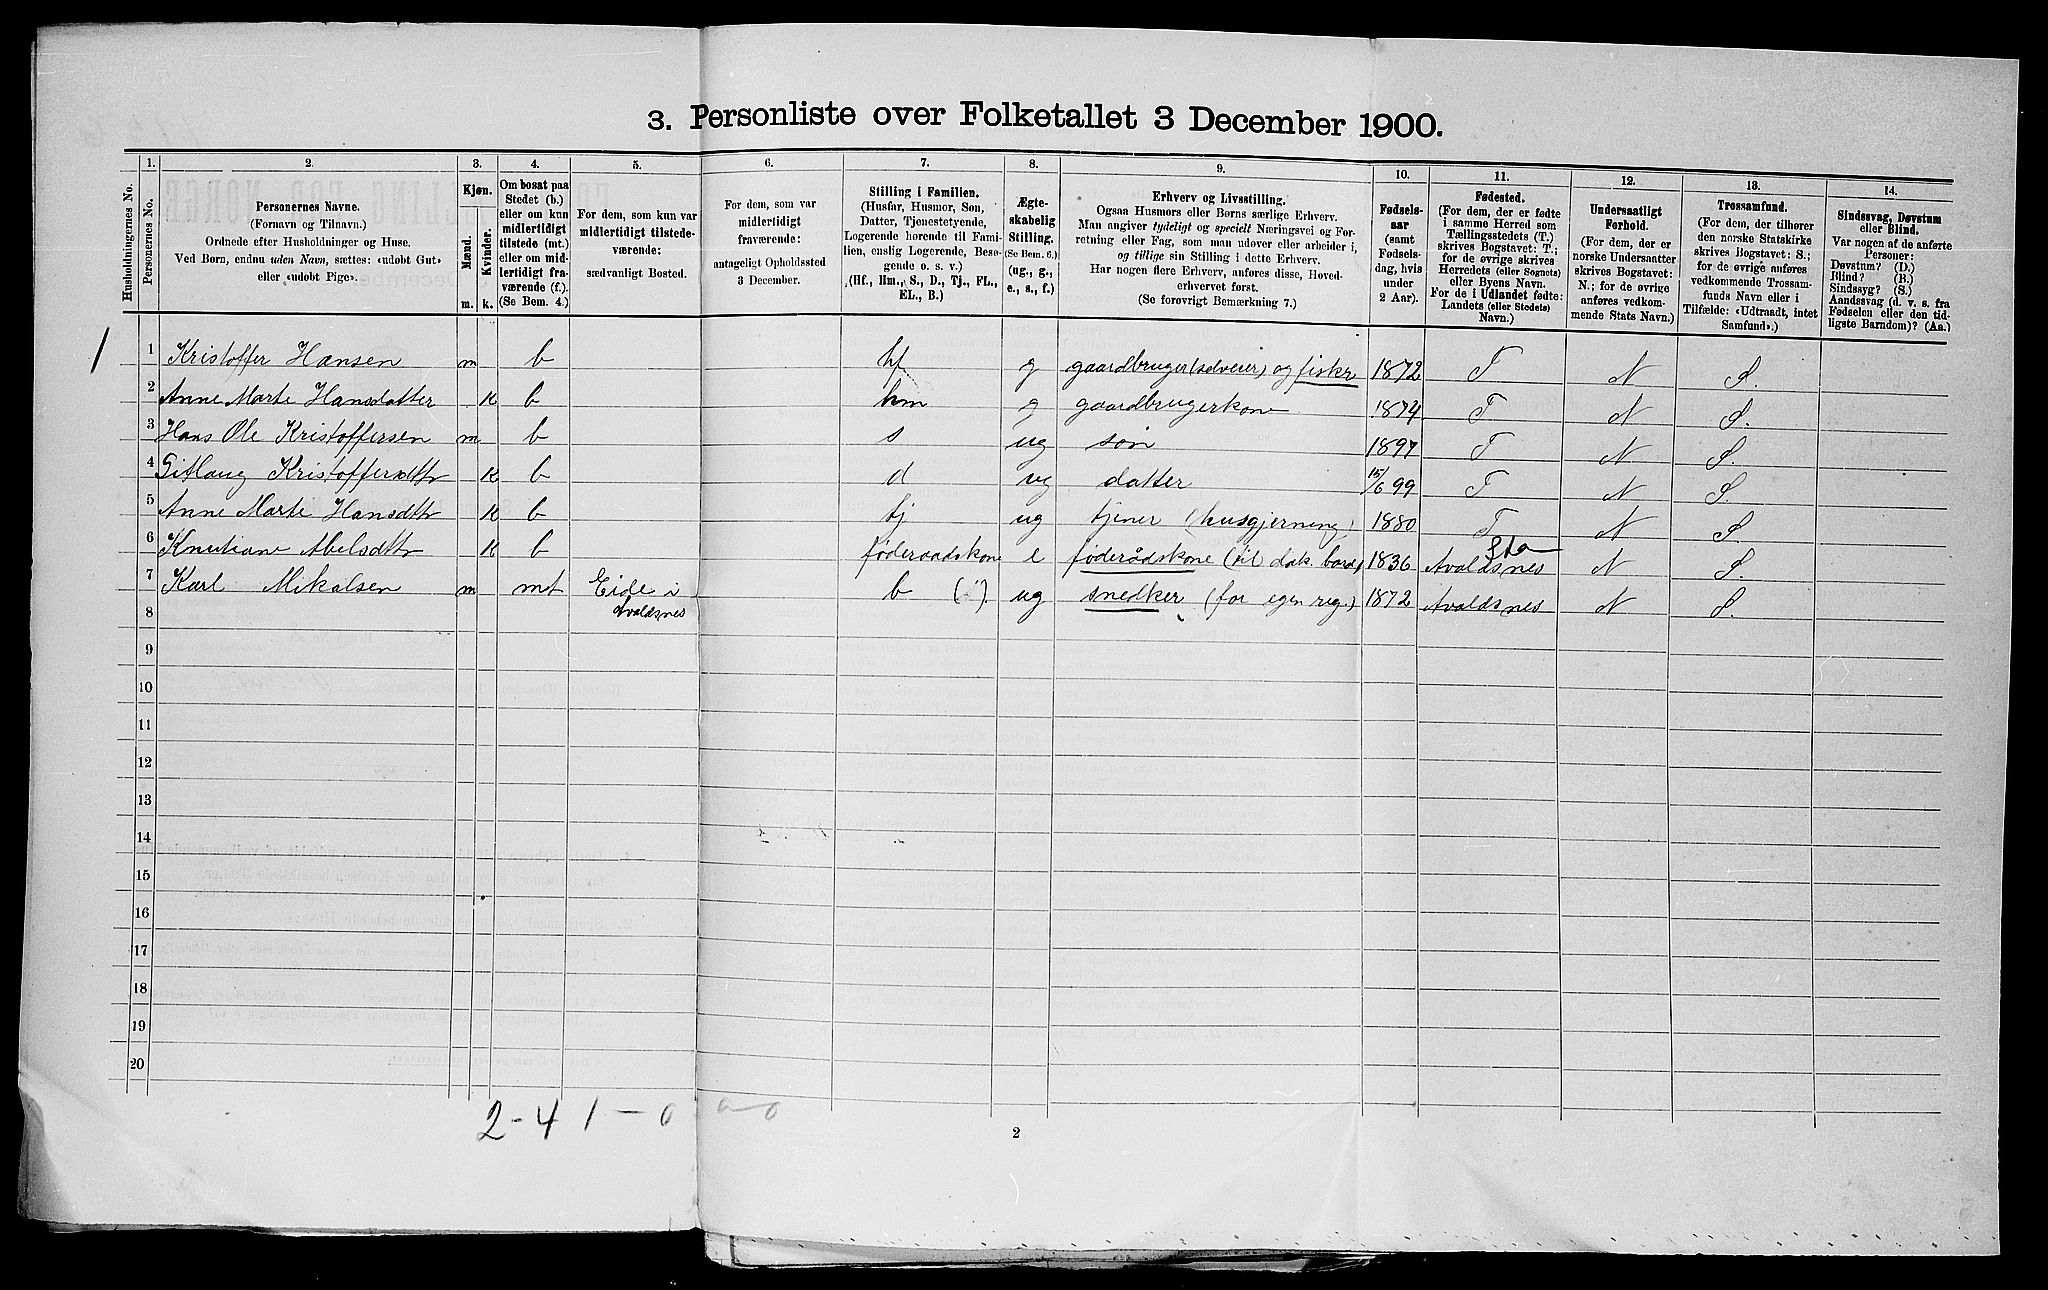 3. Personliste over Folketallet 3 December 1900.
Husholdningernes No.
1. Personernes No.
2. Personernes Navne.
(Fornavn og Tilnavn.)
Ordnede efter Husholdninger og Huse.
Ved Børn, endnu uden Navn, sættes: «udøbt Gut»
eller «udøbt Pige».
3. Kjøn.
Mænd. m.
Kvinder. k.
4. Om bosat paa
Stedet (b.)
eller om kun
midlertidigt
tilstede (mt.)
eller om mid-
lertidigt fra-
værende (f.).
(Se Bem. 4.)
5. For dem, som kun var
midlertidigt tilstede-
værende:
sædvanligt Bosted.
6. For dem, som var
midlertidigt
fraværende:
antageligt Opholdssted
3 December.
7. Stilling i Familien.
(Husfar, Husmor, Søn,
Datter, Tjenestetyende,
Logerende hørende til Fami-
lien, enslig Logerende, Besø-
gende o. s. v.)
(Hf., Hm., S., D., Tj., FL.,
EL., B.)
8. Ægte-
skabelig
Stilling.
(Se Bem. 6.)
(ug., g.,
e., s., f.)
9. Erhverv og Livsstilling.
Ogsaa Husmors eller Børns særlige Erhverv.
Man angiver tydeligt og specielt Næringsvei og For-
retning eller Fag, som man udøver eller arbeider i,
og tillige sin Stilling i dette Erhverv.
Har nogen flere Erhverv, anføres disse, Hoved-
erhvervet først.
(Se forøvrigt Bemærkning 7.)
10. Fødsels-
aar
(samt
Fødsels-
dag, hvis
under
2 Aar).
11. Fødested.
(For dem, der er fødte
i samme Herred som
Tællingsstedets (T.)
skrives Bogstavet: T.;
for de øvrige skrives
Herredets (eller Sognets)
eller Byens Navn.
For de i Udlandet fødte:
Landets (eller Stedets)
Navn.)
12. Undersaatligt
Forhold.
(For dem, der er
norske Undersaatter
skrives Bogstavet:
N.; for de øvrige
anføres vedkom-
mende Stats Navn.)
13. Trossamfund.
(For dem, der tilhører
den norske Statskirke
skrives Bogstavet: S.;
for de øvrige anføres
vedkommende Trossam-
funds Navn eller i
Tilfælde: «Udtraadt, intet
Samfund».)
14. Sindssvag, Døvstum
eller Blind.
Var nogen af de anførte
Personer:
Døvstum? (D.)
Blind? (B.)
Sindssyg? (S.)
Aandssvag (d. v. s. fra
Fødselen eller den tid-
ligste Barndom)? (Aa.)
1 1 Kristoffer Hansen m b hf g gaardbruger (selveier) og fisker 1872 T N S.
2 Anne Marte Hansdatter k b hm g gaardbrugerkone 1874 T N S.
3 Hans Ole Kristoffersen m b s ug søn 1897 T N S.
4 Kristoffersdtr k b d ug datter 15/6 99 T N S.
5 Anne Marte Hansdtr k b tj ug tjener (husgjerning) 1880 T N S.
6 Abelsdtr k b føderaadskone e føderådskone 1836 Avaldsnes N S.
7 Karl Mikalsen m mt Eide i Avaldsnes b ug snedker (for egen reg.) 1872 Avaldsnes N S.
8
9
10
11
12
13
14
15
16
17
18
19
20
2 - 4 1 - 0 0 - 0
2